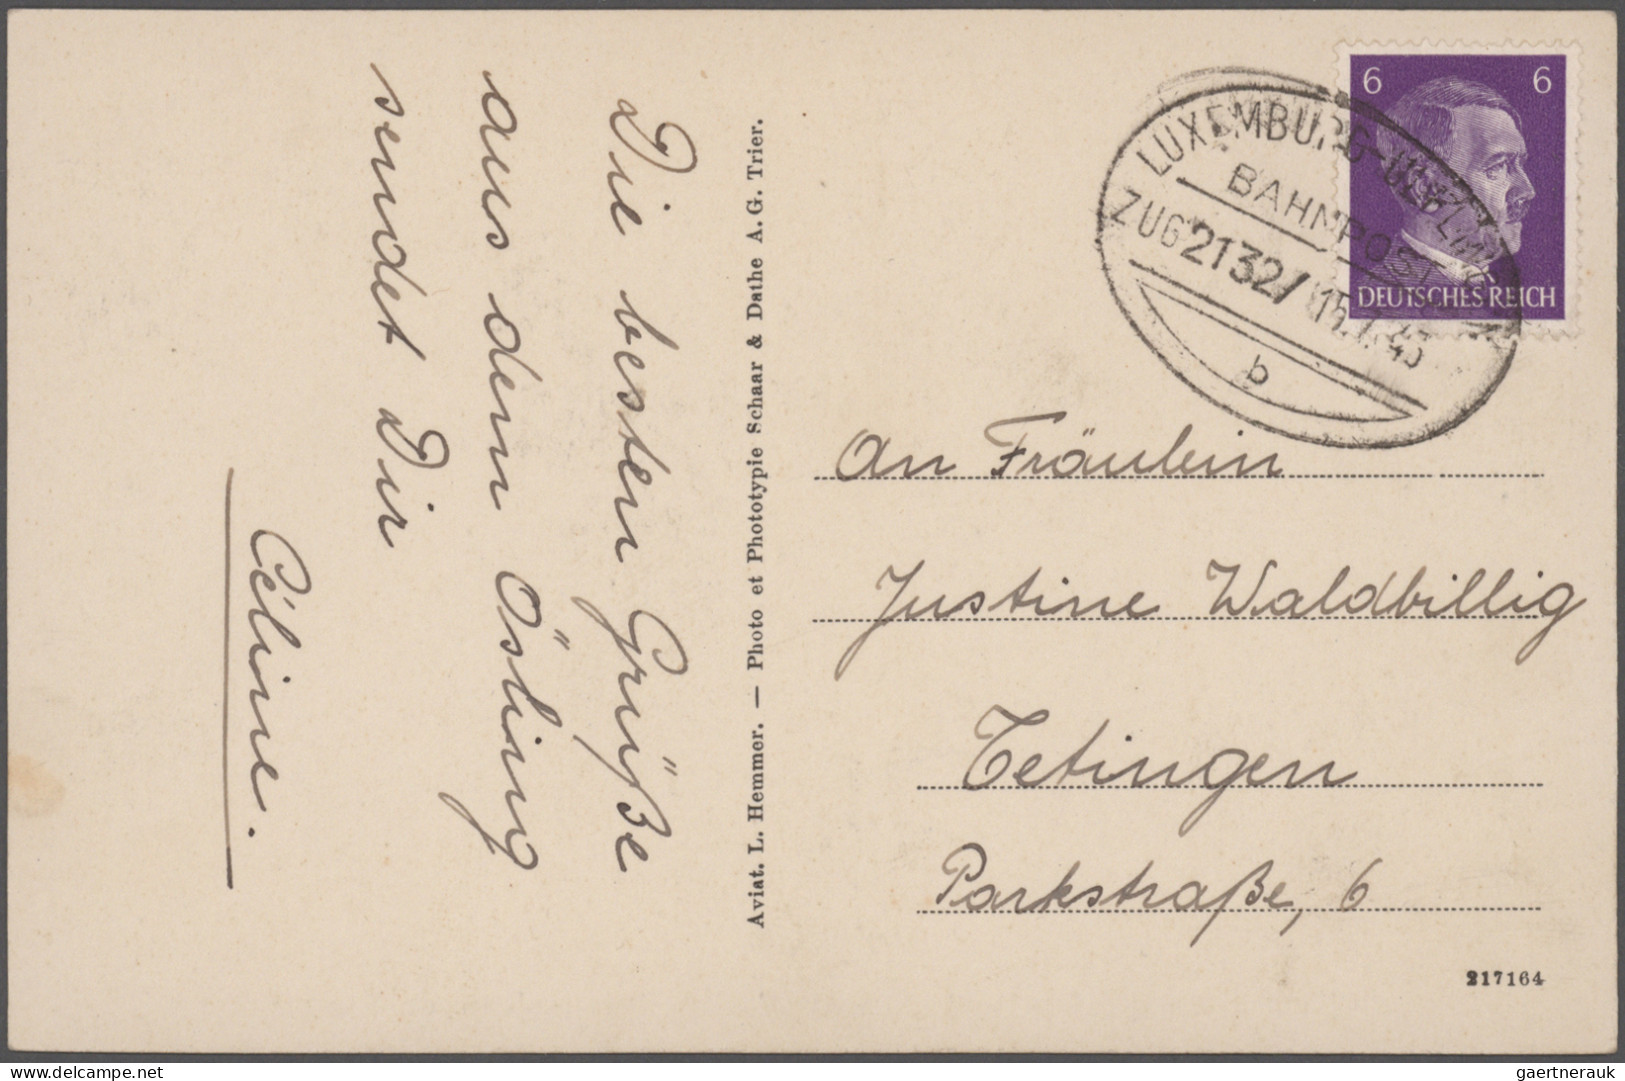 Die besten Grüße
aus dem Ösling
sendet Dir
Céline.
Aviat. L. Hemmer. — Photo et Phototypie Schaar & Dathe A. G. Trier.
6 6
DEUTSCHES REICH
LUXEMBURG-ULFLINGEN
BAHNPOST
ZUG 2132/ 15.7.43
b
An Fräulein
Justine Waldbillig
Tetingen
Parkstraße, 6
217164
delcampe.net
gaertnerauk